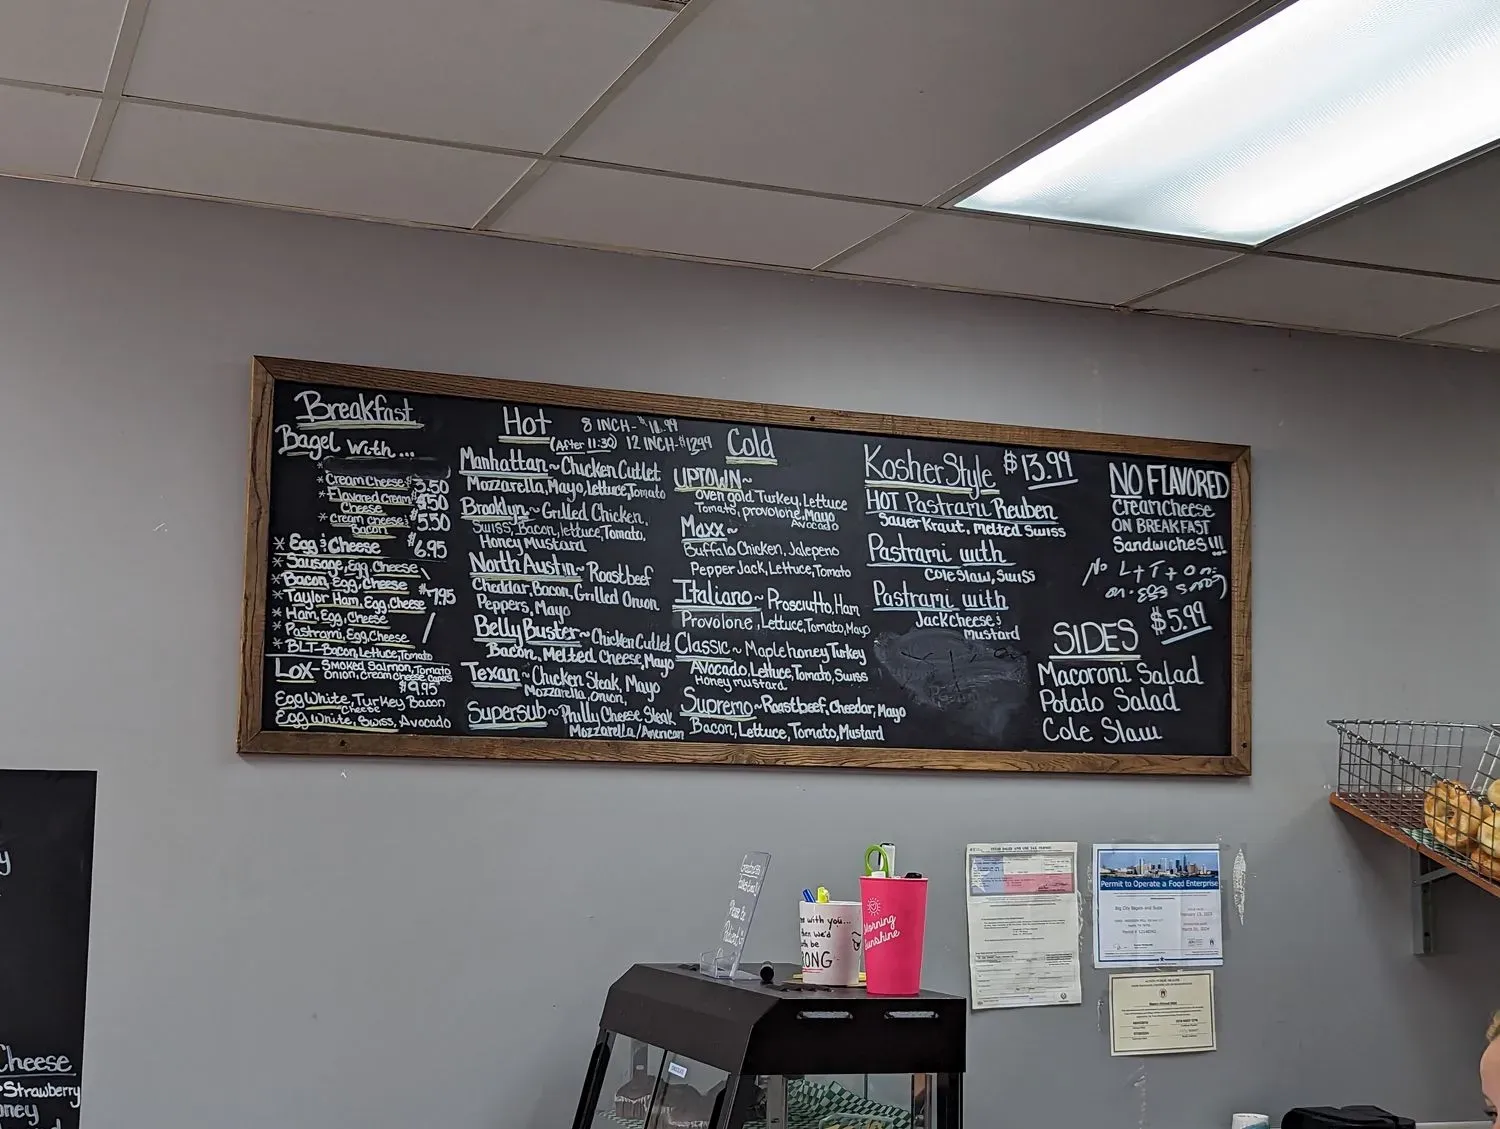 Breakfast
Bagel With ...
* Cream Cheese $3.50
* Flavored Cream Cheese $4.50
* Cream Cheese & Bacon $5.50
* Egg & Cheese $6.95
* Sausage, Egg, Cheese
* Bacon, Egg, Cheese $7.95
* Taylor Ham, Egg, Cheese
* Ham, Egg, Cheese
* Pastrami, Egg, Cheese
* BLT-Bacon, Lettuce, Tomato
LOX- Smoked Salmon, Tomato
Onion, Cream Cheese, Capers
$9.95
Egg White, Turkey Bacon
Cheese
Egg White, Swiss, Avocado
Hot
8 INCH-
(After 11:30) 12 INCH-$12.99
Manhattan~Chucken Cutlet
Mozzarella, Mayo, Lettuce, Tomato
Brooklyn~Grilled Chicken,
Swiss, Bacon, lettuce, Tomato,
Honey Mustard
North Austin~Roastbeef
Cheddar, Bacon, Grilled Onion
Peppers, Mayo
Belly Buster~Chicken Cutlet
Bacon, Melted Cheese, Mayo
Texan~Chicken Steak, Mayo
Mozzarella, Onion,
Supersub~Philly Cheese Steak,
Mozzarella/American
Cold
UPTOWN~
oven gold Turkey, Lettuce
Tomato, provolone, Mayo
Avocado
Maxx~
Buffalo Chicken, Jalepeno
Pepper Jack, Lettuce, Tomato
Italiano~Prosciutto, Ham
Provolone, Lettuce, Tomato, Mayo
Classic~Maplehoney Turkey
Avocado, Lettuce, Tomato, Swiss
Honey mustard
Supremo~Roastbeef, Cheedar, Mayo
Bacon, Lettuce, Tomato, Mustard
Kosher Style $13.99
HOT Pastrami Reuben
Sauer Kraut, Melted Swiss
Pastrami with
Cole Slaw, Swiss
Pastrami with
Jack cheese &
Mustard
NO FLAVORED
creamcheese
ON BREAKFAST
Sandwiches!!!
No L+T+O
on egg
$5.99
SIDES
Macaroni Salad
Potato Salad
Cole Slaw
Cheese
Strawberry
Please be
Patient
with you...
then we'd
be
Morning
Sunshine
TEXAS SALES AND USE TAX PERMIT
Permit to Operate a Food Enterprise
Big City Bagels and Subs